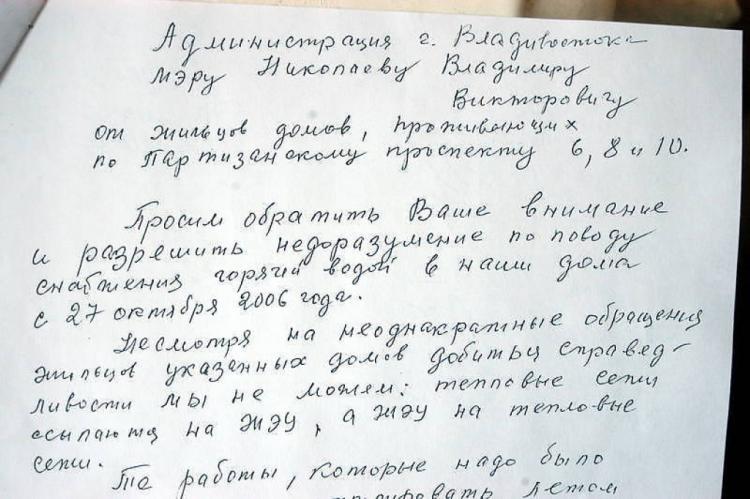 Администрация г. Владивостока
мэру Николаеву Владимиру
Викторовичу
от жильцов домов, проживающих
по Партизанскому проспекту 6, 8 и 10.
Просим обратить Ваше внимание
и разрешить недоразумение по поводу
снабжения горячий водой в наши дома
с 27 октября 2006 года.
Несмотря на неоднакратные обращения
жильцов указанных домов добиться справед-
ливости мы не можем: тепловые сети
ссылаются на ЖЭУ, а ЖЭУ на тепловые
сети.
Те работы, которые надо было
летом